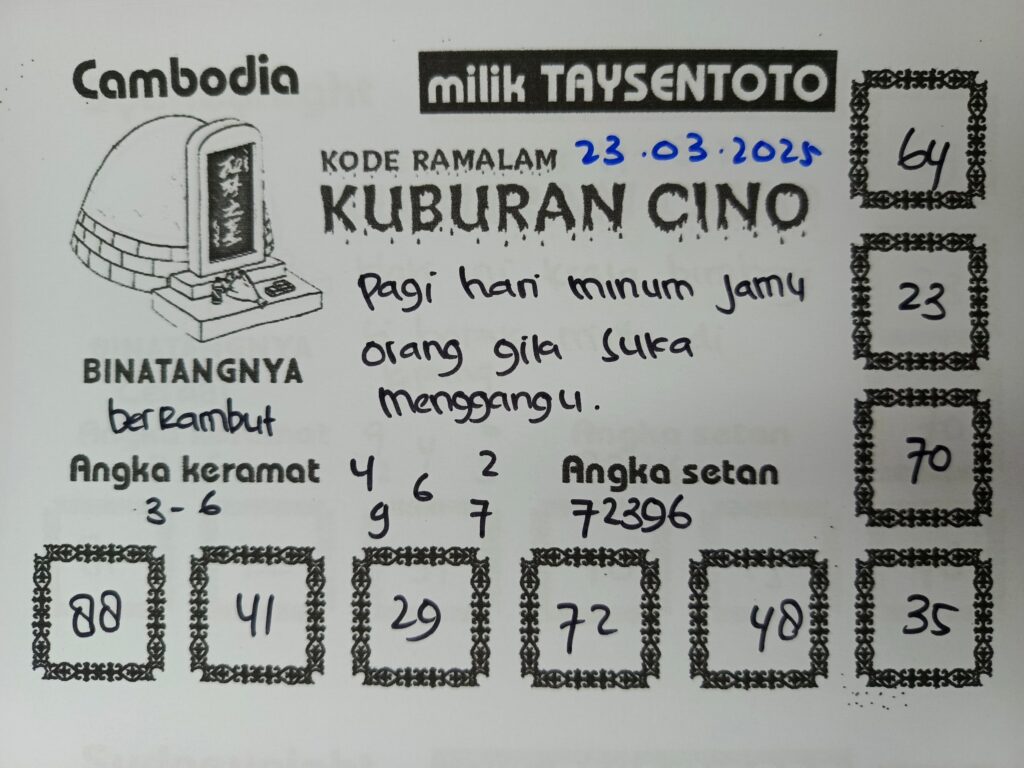 Cambodia
milik TAYSENTOTO
KODE RAMALAM 23.03.2025
KUBURAN CINO
Pagi hari minum jamu
orang gila suka
menggangu.
BINATANGNYA
berRambut
Angka keramat
3-6
4 6 2
9 7
Angka setan
72396
64
23
70
88 41 29 72 48 35